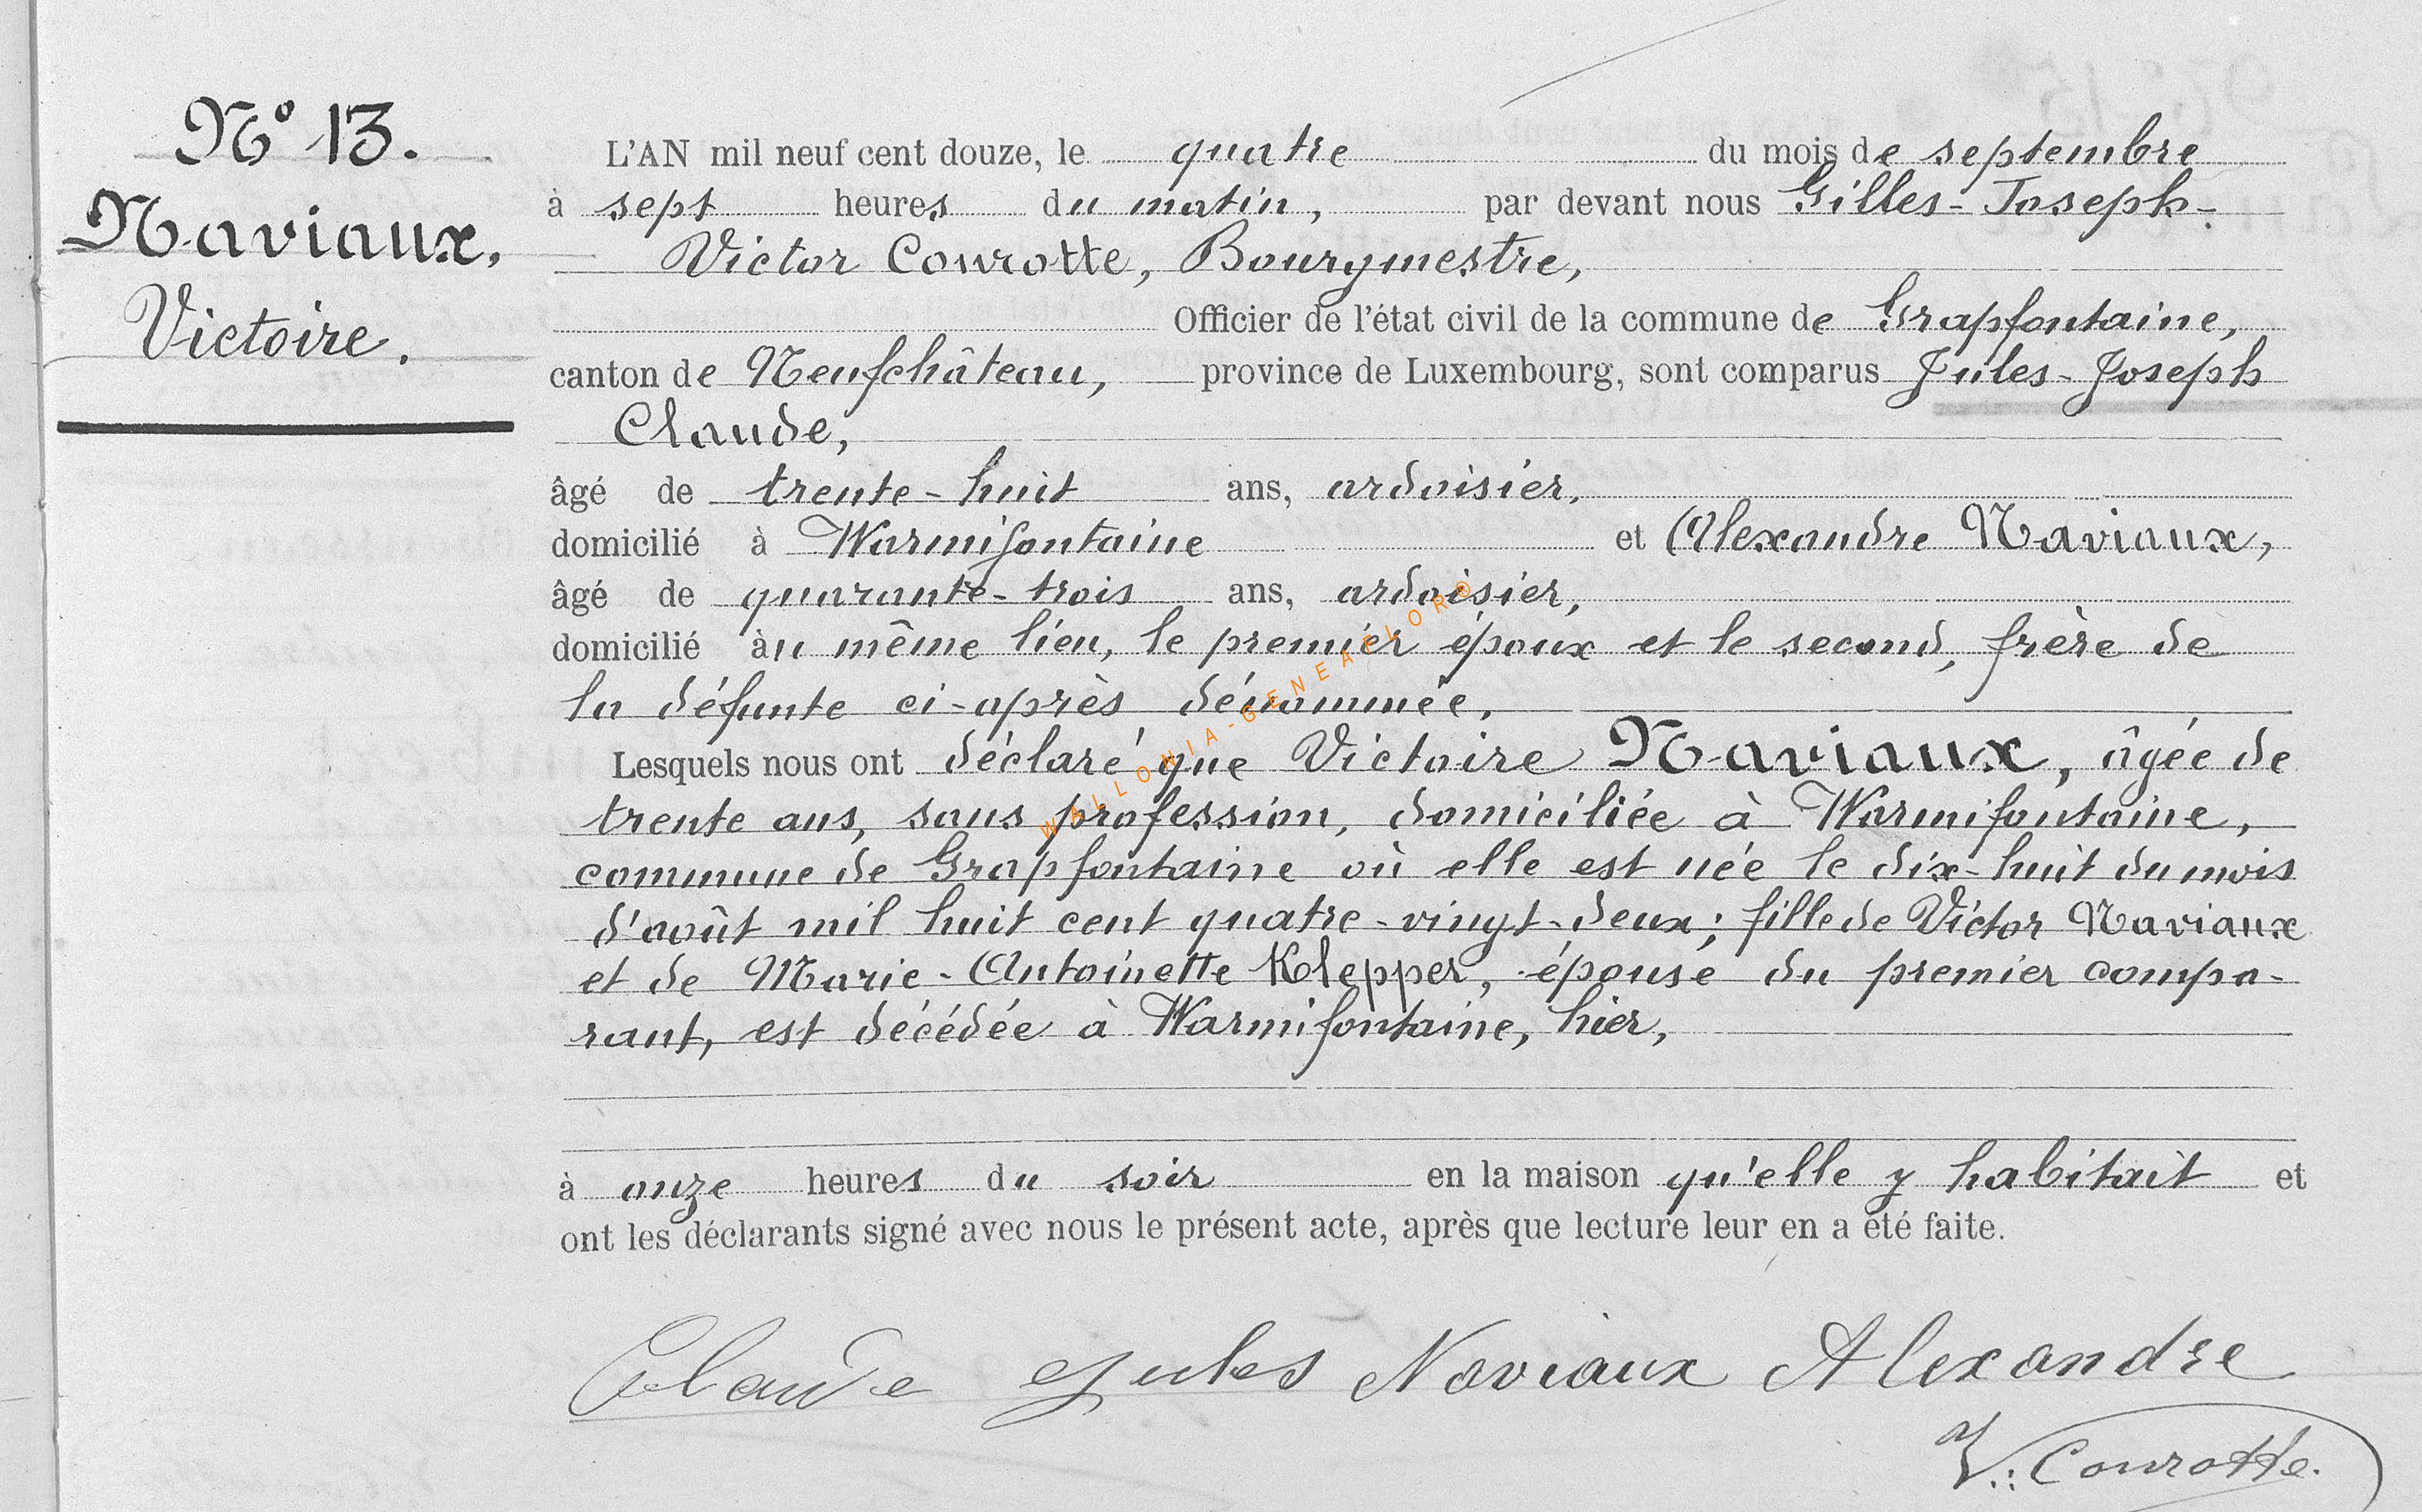 N° 13.
Naviaux,
Victoire.
L'AN mil neuf cent douze, le quatre du mois de septembre
à sept heures du matin, par devant nous Gilles-Joseph-
Victor Courotte, Bourgmestre,
Officier de l'état civil de la commune de Grapfontaine,
canton de Neufchâteau, province de Luxembourg, sont comparus Jules-Joseph
Claude,
âgé de trente-huit ans, ardoisier,
domicilié à Warmifontaine et Alexandre Naviaux,
âgé de quarante-trois ans, ardoisier,
domicilié àu même lieu, le premier époux et le second, frère de
la défunte ci-après dénommée.
Lesquels nous ont déclaré que Victoire Naviaux, âgée de
trente ans, sans profession, domiciliée à Warmifontaine,
commune de Grapfontaine où elle est née le dix-huit du mois
d'août mil huit cent quatre-vingt-deux; fille de Victor Naviaux
et de Marie-Antoinette Klepper, épouse du premier compa-
rant, est décédée à Warmifontaine, hier,
à onze heures du soir en la maison qu'elle y habitait et
ont les déclarants signé avec nous le présent acte, après que lecture leur en a été faite.
Claude Jules Naviaux Alexandre
V. Courotte.
WALLONIA-GENEAFLOR©